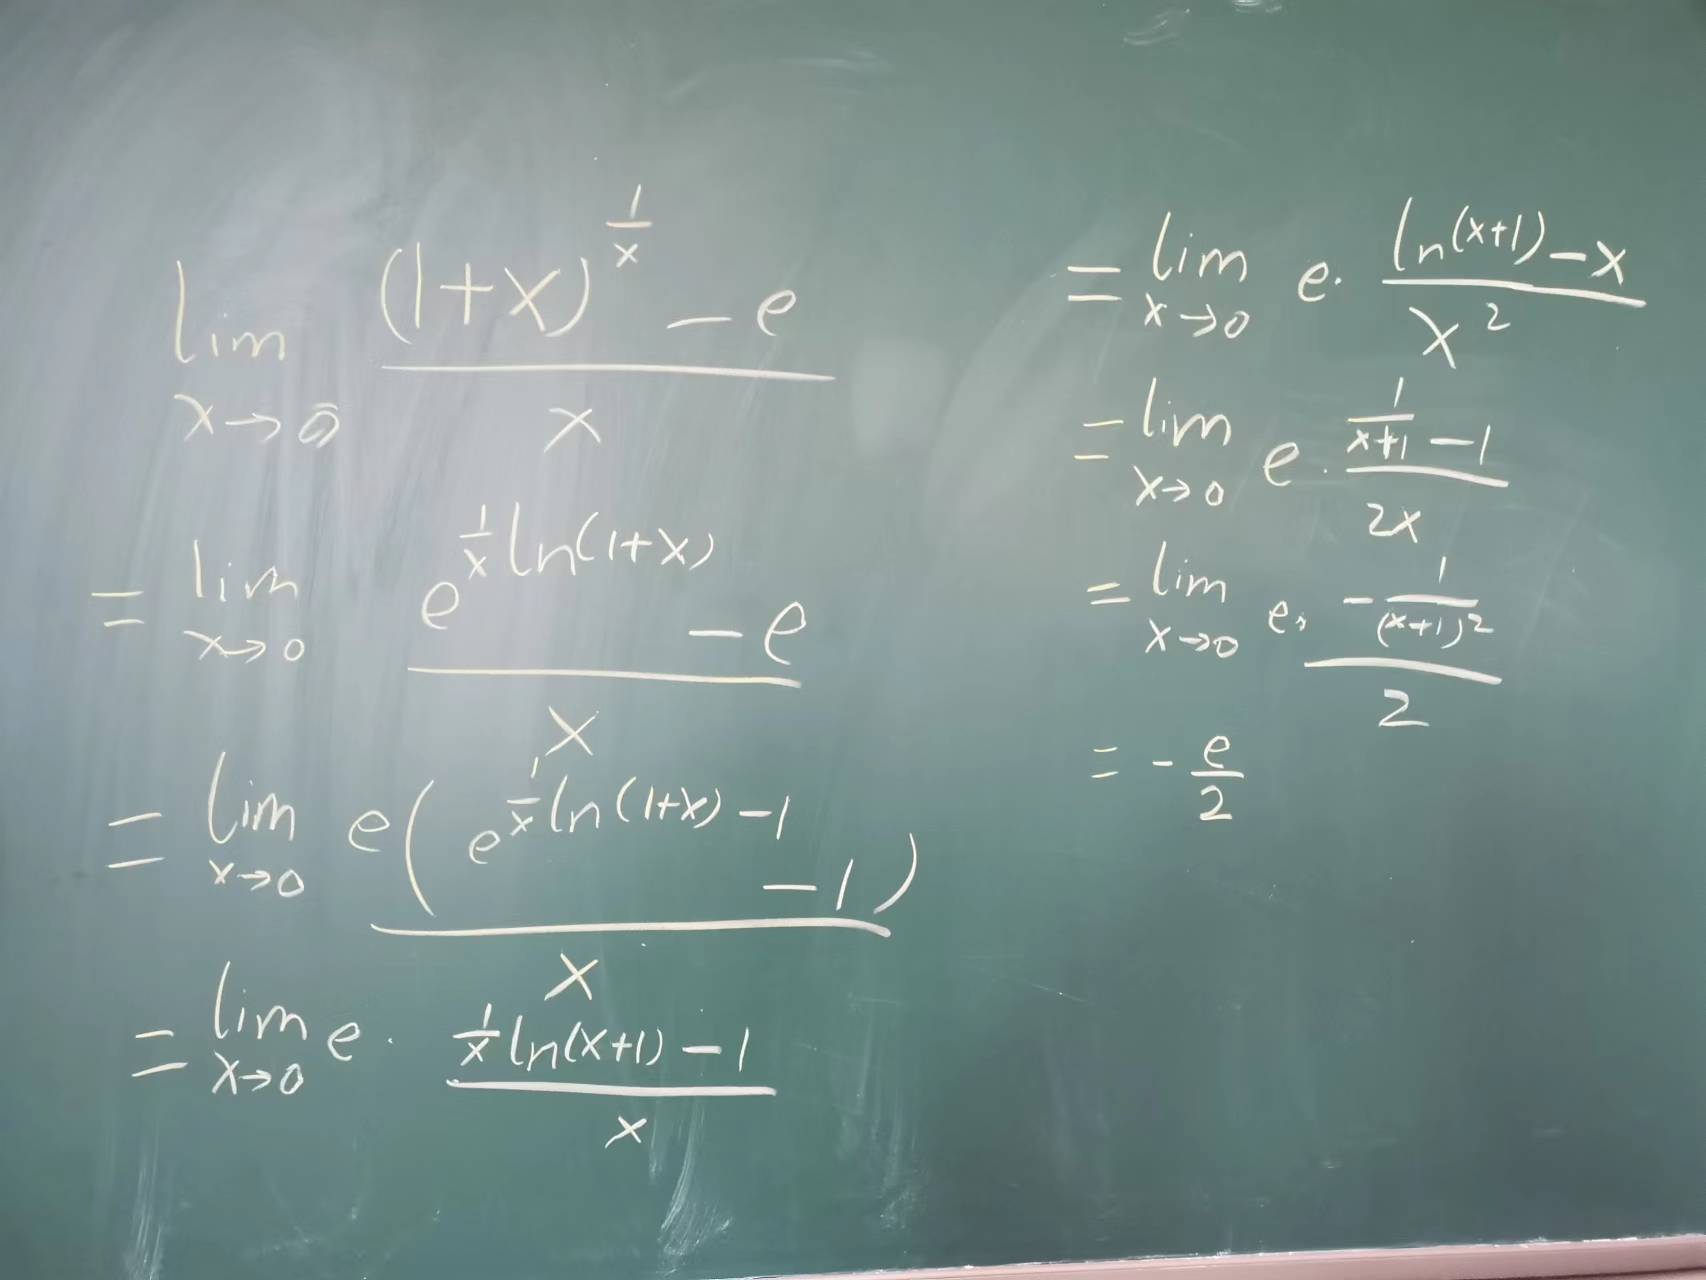 lim_{x→0} ((1+x)^{1/x} - e)/x
= lim_{x→0} (e^{1/x ln(1+x)} - e)/x
= lim_{x→0} e(e^{1/x ln(1+x) - 1} - 1)/x
= lim_{x→0} e · (1/x ln(x+1) - 1)/x
= lim_{x→0} e · (ln(x+1) - x)/x^2
= lim_{x→0} e · (1/(x+1) - 1)/(2x)
= lim_{x→0} e · (-1/(x+1)^2)/2
= -e/2